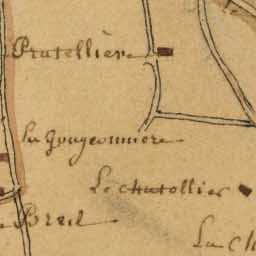 Pratellière
la Gougeonniere
Le Chatellier
Breil
La Ch